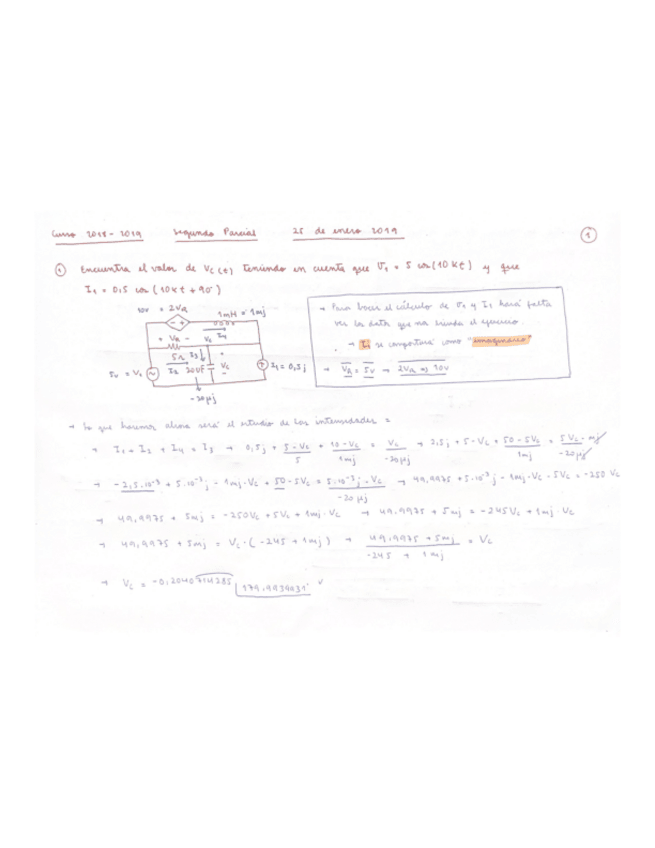 Curso 2018-2019 Segundo Parcial 25 de enero 2019 1
1 Encuentra el valor de Vc(t) teniendo en cuenta que V1 = 5 cos(10kt) y que
I1 = 0,5 cos(10kt + 90°)
10V = 2VR
1mH = 1mj
- +
+ VR - Vc I4
5Ω I3
I2 20μF Vc
5V = V1
I1 = 0,5j
-20μj
→ Para hacer el cálculo de V1 y I1 hará falta
ver los datos que nos brinda el ejercicio.
→ I1 se comportará como "imaginario"
→ VR = 5V → 2VR → 10V
→ Lo que haremos ahora será el estudio de las intensidades =
→ I1 + I2 + I4 = I3 → 0,5j + 5-Vc/5 + 10-Vc/1mj = Vc/-20μj → 2,5j + 5-Vc + 50-5Vc/1mj = 5Vc·mj/-20μj
→ -2,5·10⁻³ + 5·10⁻³j - 1mj·Vc + 50-5Vc = 5·10⁻³j·Vc/-20μj → 49,9975 + 5·10⁻³j - 1mj·Vc - 5Vc = -250 Vc
→ 49,9975 + 5mj = -250Vc + 5Vc + 1mj·Vc → 49,9975 + 5mj = -245Vc + 1mj·Vc
→ 49,9975 + 5mj = Vc·(-245 + 1mj) → 49,9975 + 5mj/-245 + 1mj = Vc